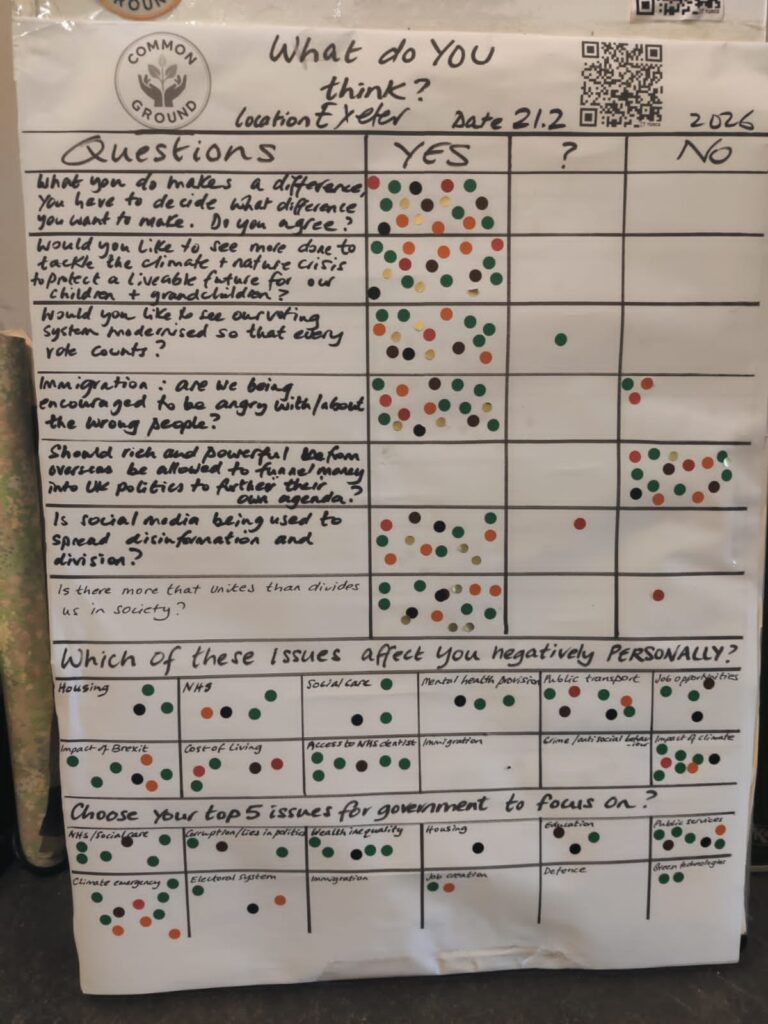 ROUN
COMMON
GROUND
What do YOU
think?
Location Exeter Date 21.2 2026
Questions YES ? NO
What you do makes a difference,
you have to decide what difference
you want to make. Do you agree?
Would you like to see more done to
tackle the climate + nature crisis
to protect a liveable future for our
children + grandchildren?
Would you like to see our voting
system modernised so that every
vote counts?
Immigration: are we being
encouraged to be angry with/about
the wrong people?
Should rich and powerful from
overseas be allowed to funnel money
into UK politics to further their
own agenda?
Is social media being used to
spread disinformation and
division?
Is there more that unites than divides
us in society?
Which of these issues affect you negatively PERSONALLY?
Housing NHS Social care Mental health provision Public transport Job opportunities
Impact of Brexit Cost of Living Access to NHS dentist Immigration Crime/antisocial behav-
iour
Impact of climate
Choose your top 5 issues for government to focus on?
NHS/Social care Corruption/Lies in politics Wealth inequality Housing Education Public services
Climate emergency Electoral System Immigration Job creation Defence Green technologies